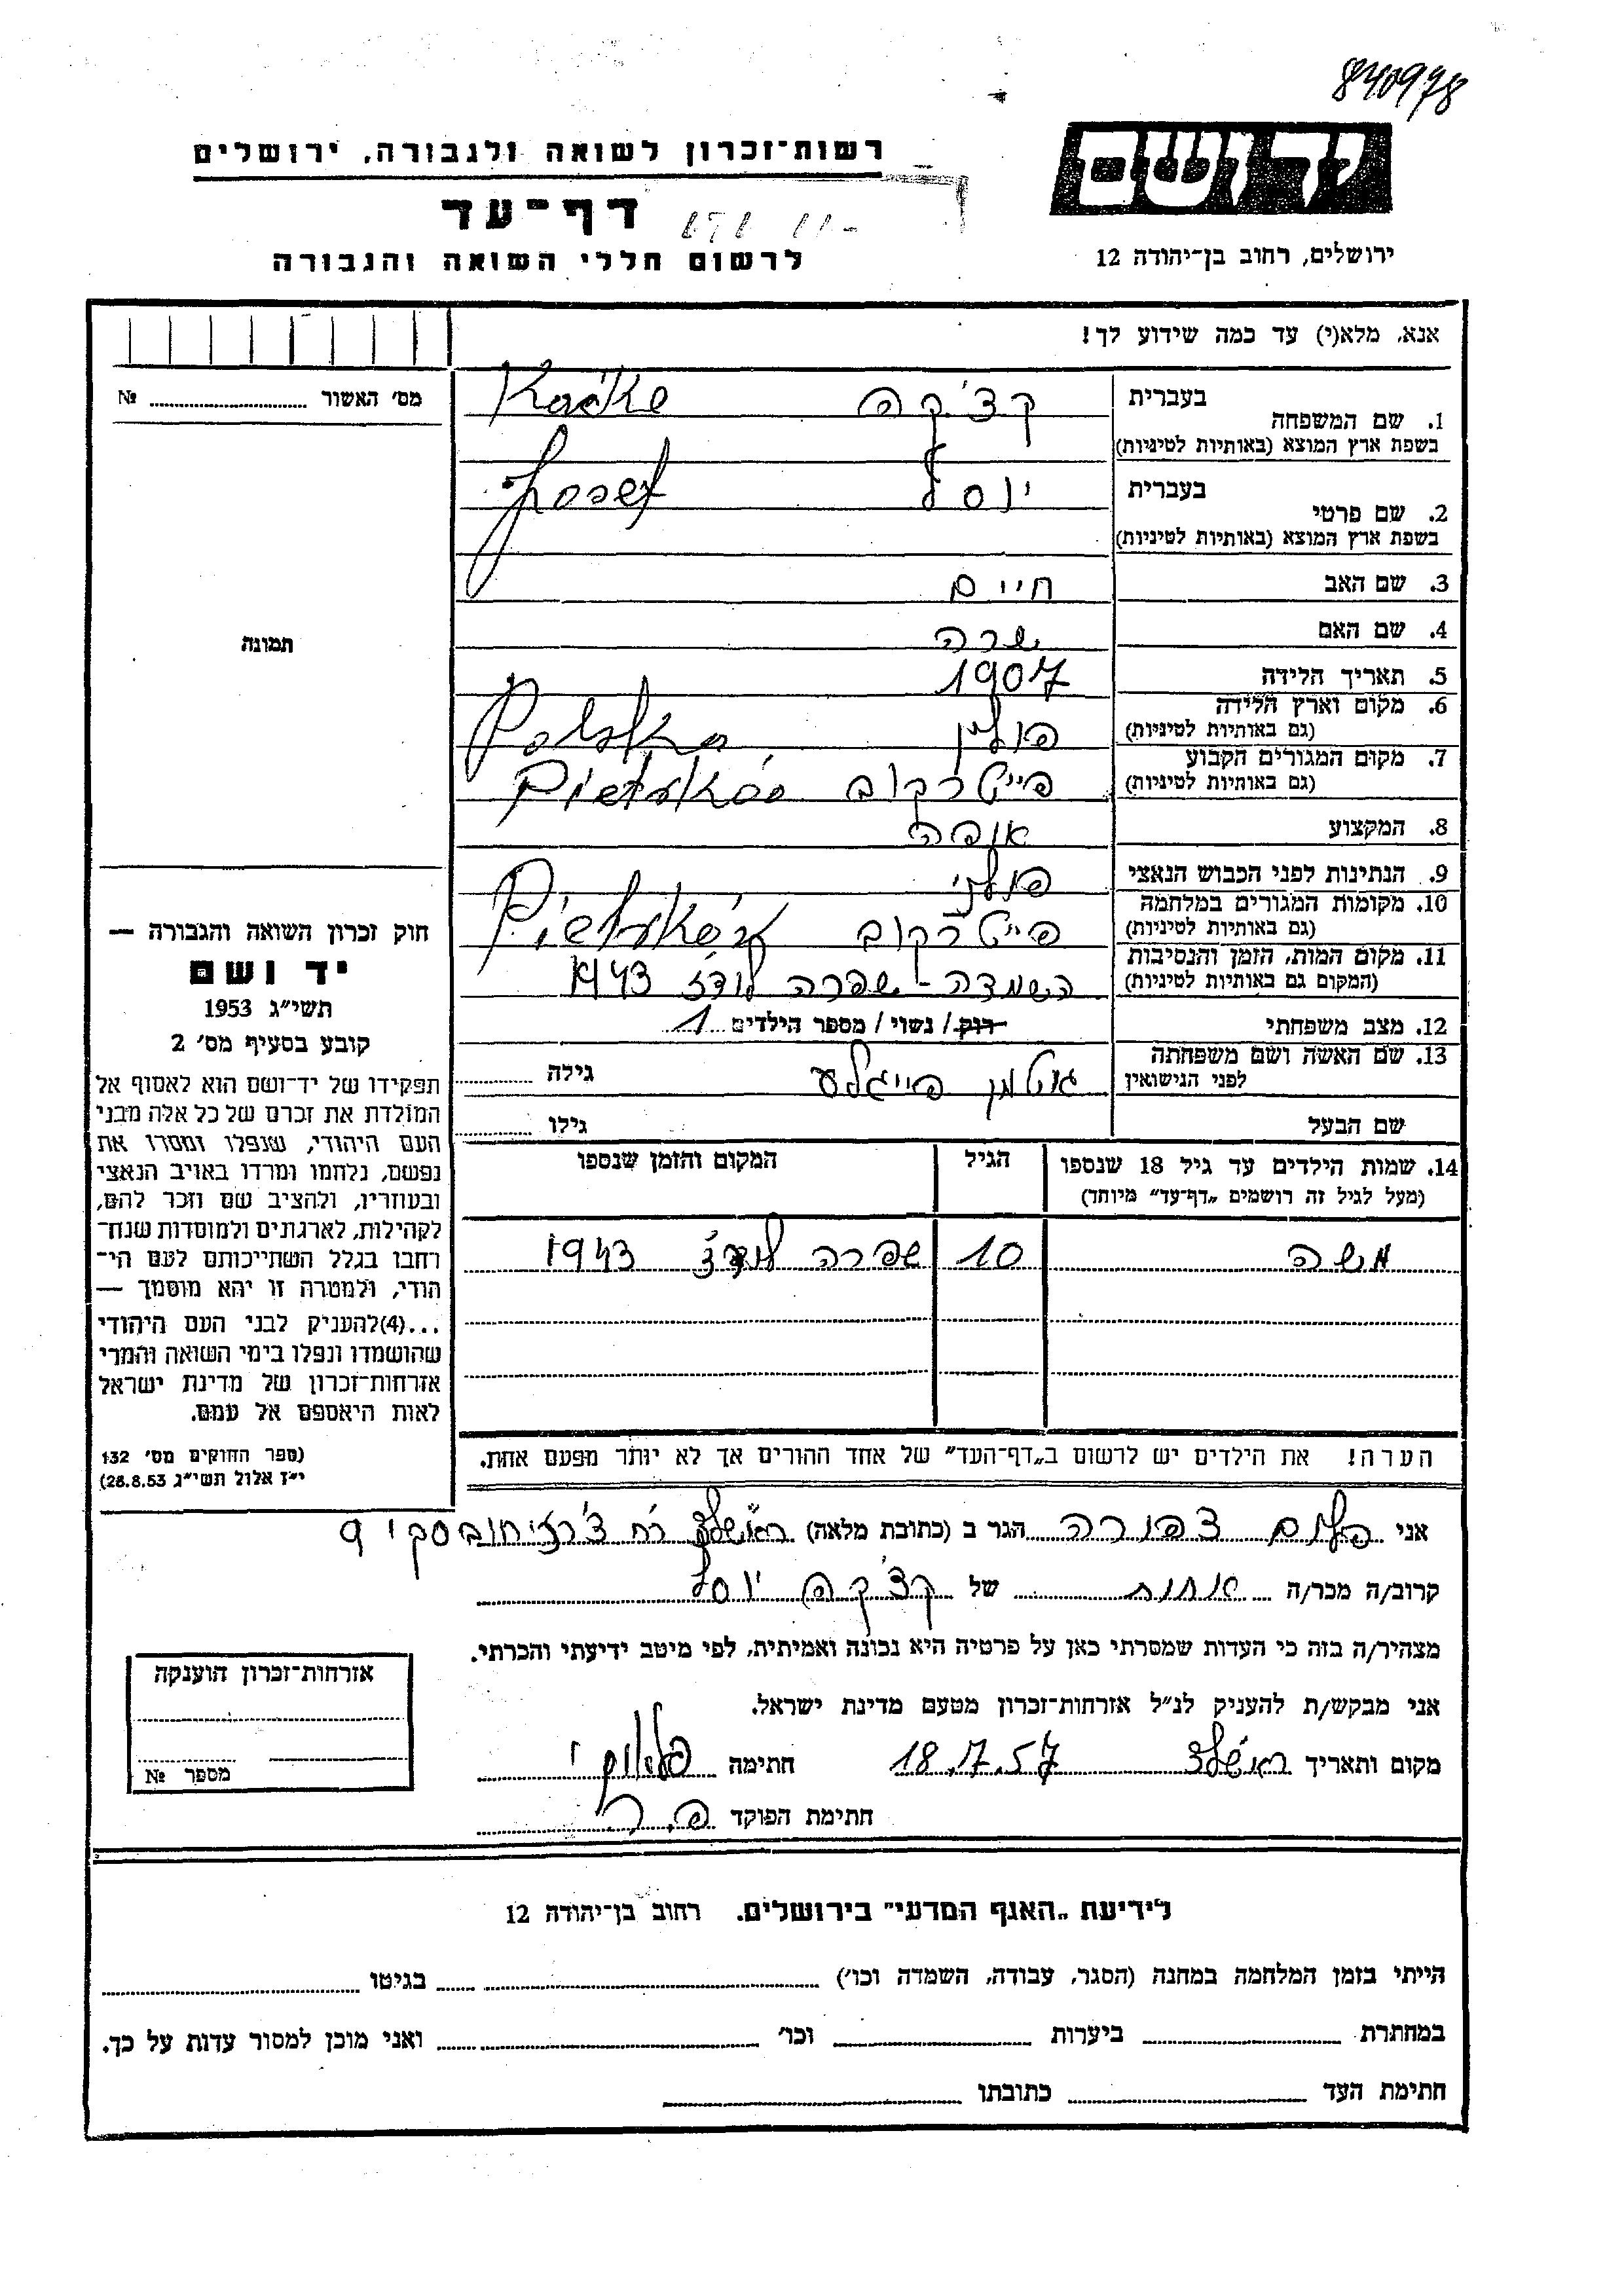 840978
יד ושם
רשות־זכרון לשואה ולגבורה, ירושלים
דף־עד
ירושלים, רחוב בן־יהודה 12
לרשום חללי השואה והגבורה
אנא, מלא(י) עד כמה שידוע לך!
בעברית קצ'קה Kaćke
1. שם המשפחה
בשפת ארץ המוצא (באותיות לטיניות)
בעברית יוסף Josef
2. שם פרטי
בשפת ארץ המוצא (באותיות לטיניות)
3. שם האב חיים
4. שם האם שרה
5. תאריך הלידה 1907
6. מקום וארץ הלידה
(גם באותיות לטיניות) פולין Polska
7. מקום המגורים הקבוע
(גם באותיות לטיניות) פייטרקוב
8. המקצוע אופה
9. הנתינות לפני הכבוש הנאצי פולני
10. מקומות המגורים במלחמה
(גם באותיות לטיניות) פייטרקוב
11. מקום המות, הזמן והנסיבות
(המקום גם באותיות לטיניות) השמדה - שפרה לודז 1943
12. מצב משפחתי רוק / נשוי / מספר הילדים 1
13. שם האשה ושם משפחתה
לפני הנישואין גוטמן פייגלע גילה
שם הבעל גילו
14. שמות הילדים עד גיל 18 שנספו הגיל המקום והזמן שנספו
(מעל לגיל זה רושמים „דף־עד" מיוחד)
משה 10 שפרה לודז 1943
הערה! את הילדים יש לרשום ב„דף־העד" של אחד ההורים אך לא יותר מפעם אחת.
מס' האשור №
תמונה
חוק זכרון השואה והגבורה —
יד ושם
תשי"ג 1953
קובע בסעיף מס' 2
תפקידו של יד־ושם הוא לאסוף אל
המולדת את זכרם של כל אלה מבני
העם היהודי, שנפלו ומסרו את
נפשם, נלחמו ומרדו באויב הנאצי
ובעוזריו, ולהציב שם וזכר להם,
לקהילות, לארגונים ולמוסדות שנח־
רחבו בגלל השתייכותם לעם הי־
הודי, ולמטרה זו יהא מוסמך —
...(4)להעניק לבני העם היהודי
שהושמדו ונפלו בימי השואה והמרי
אזרחות־זכרון של מדינת ישראל
לאות היאספם אל עמם.
(ספר החוקים מס' 132
י"ז אלול תשי"ג 28.8.53)
אני בלום צפורה הגר ב (כתובת מלאה) ראשל"צ רח צ'רניחובסקי 9
קרוב/ה מכר/ה אחות של קצ'קה יוסף
מצהיר/ה בזה כי העדות שמסרתי כאן על פרטיה היא נכונה ואמיתית, לפי מיטב ידיעתי והכרתי.
אני מבקש/ת להעניק לנ"ל אזרחות־זכרון מטעם מדינת ישראל.
מקום ותאריך ראשל"צ 18.7.57 חתימה
חתימת הפוקד
אזרחות־זכרון הוענקה
מספר №
לידיעת „האגף המדעי" בירושלים. רחוב בן־יהודה 12
הייתי בזמן המלחמה במחנה (הסגר, עבודה, השמדה וכו') בגיטו
במחתרת ביערות וכו' ואני מוכן למסור עדות על כך.
חתימת העד כתובתו